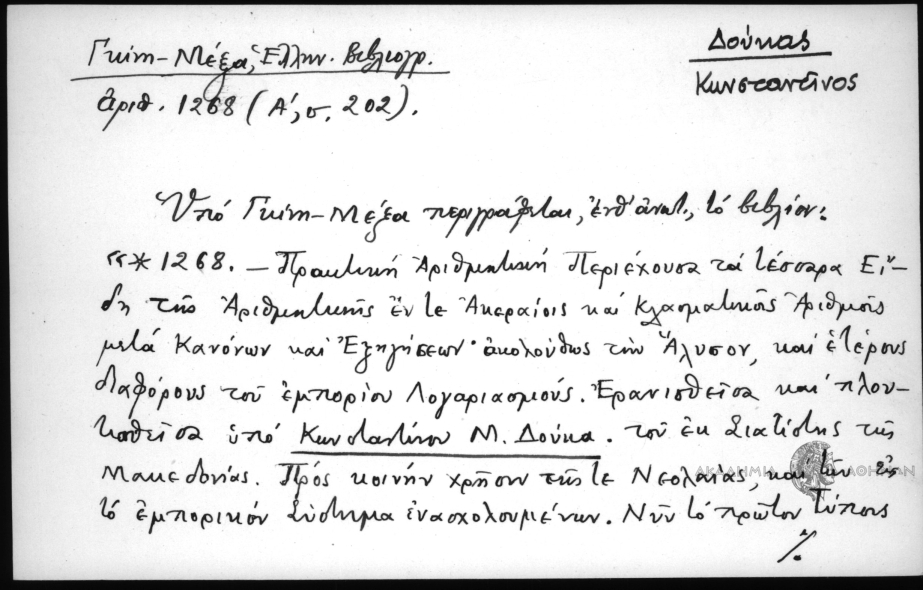 Γκίνη-Μέξα, Ἑλλην. Βιβλιογρ.
ἀριθ. 1268 (Α', σ. 202).
Δούκας
Κωνσταντῖνος
Ὑπό Γκίνη-Μέξα περιγράφεται, ἐνθ' ἀνωτ., τό βιβλίον:
«*1268. – Πρακτική Ἀριθμητική Περιέχουσα τά τέσσαρα Εἴ-
δη τῆς Ἀριθμητικῆς ἔν τε Ἀκεραίοις καί Κλασματικοῖς Ἀριθμοῖς
μετά Κανόνων καί Ἐξηγήσεων· ἀκολούθως τήν Ἅλυσον, καί ἑτέρους
διαφόρους τοῦ ἐμπορίου Λογαριασμούς. Ἐρανισθεῖσα καί πλου-
τισθεῖσα ὑπό Κωνσταντίνου Μ. Δούκα. τοῦ ἐκ Σιατίστης τῆς
Μακεδονίας. Πρός κοινήν χρῆσιν τῆς τε Νεολαίας, καί τῶν εἰς
τό ἐμπορικόν Σύστημα ἐνασχολουμένων. Νῦν τό πρῶτον τύποις
./.
ΑΚΑΔΗΜΙΑ ΑΘΗΝΩΝ